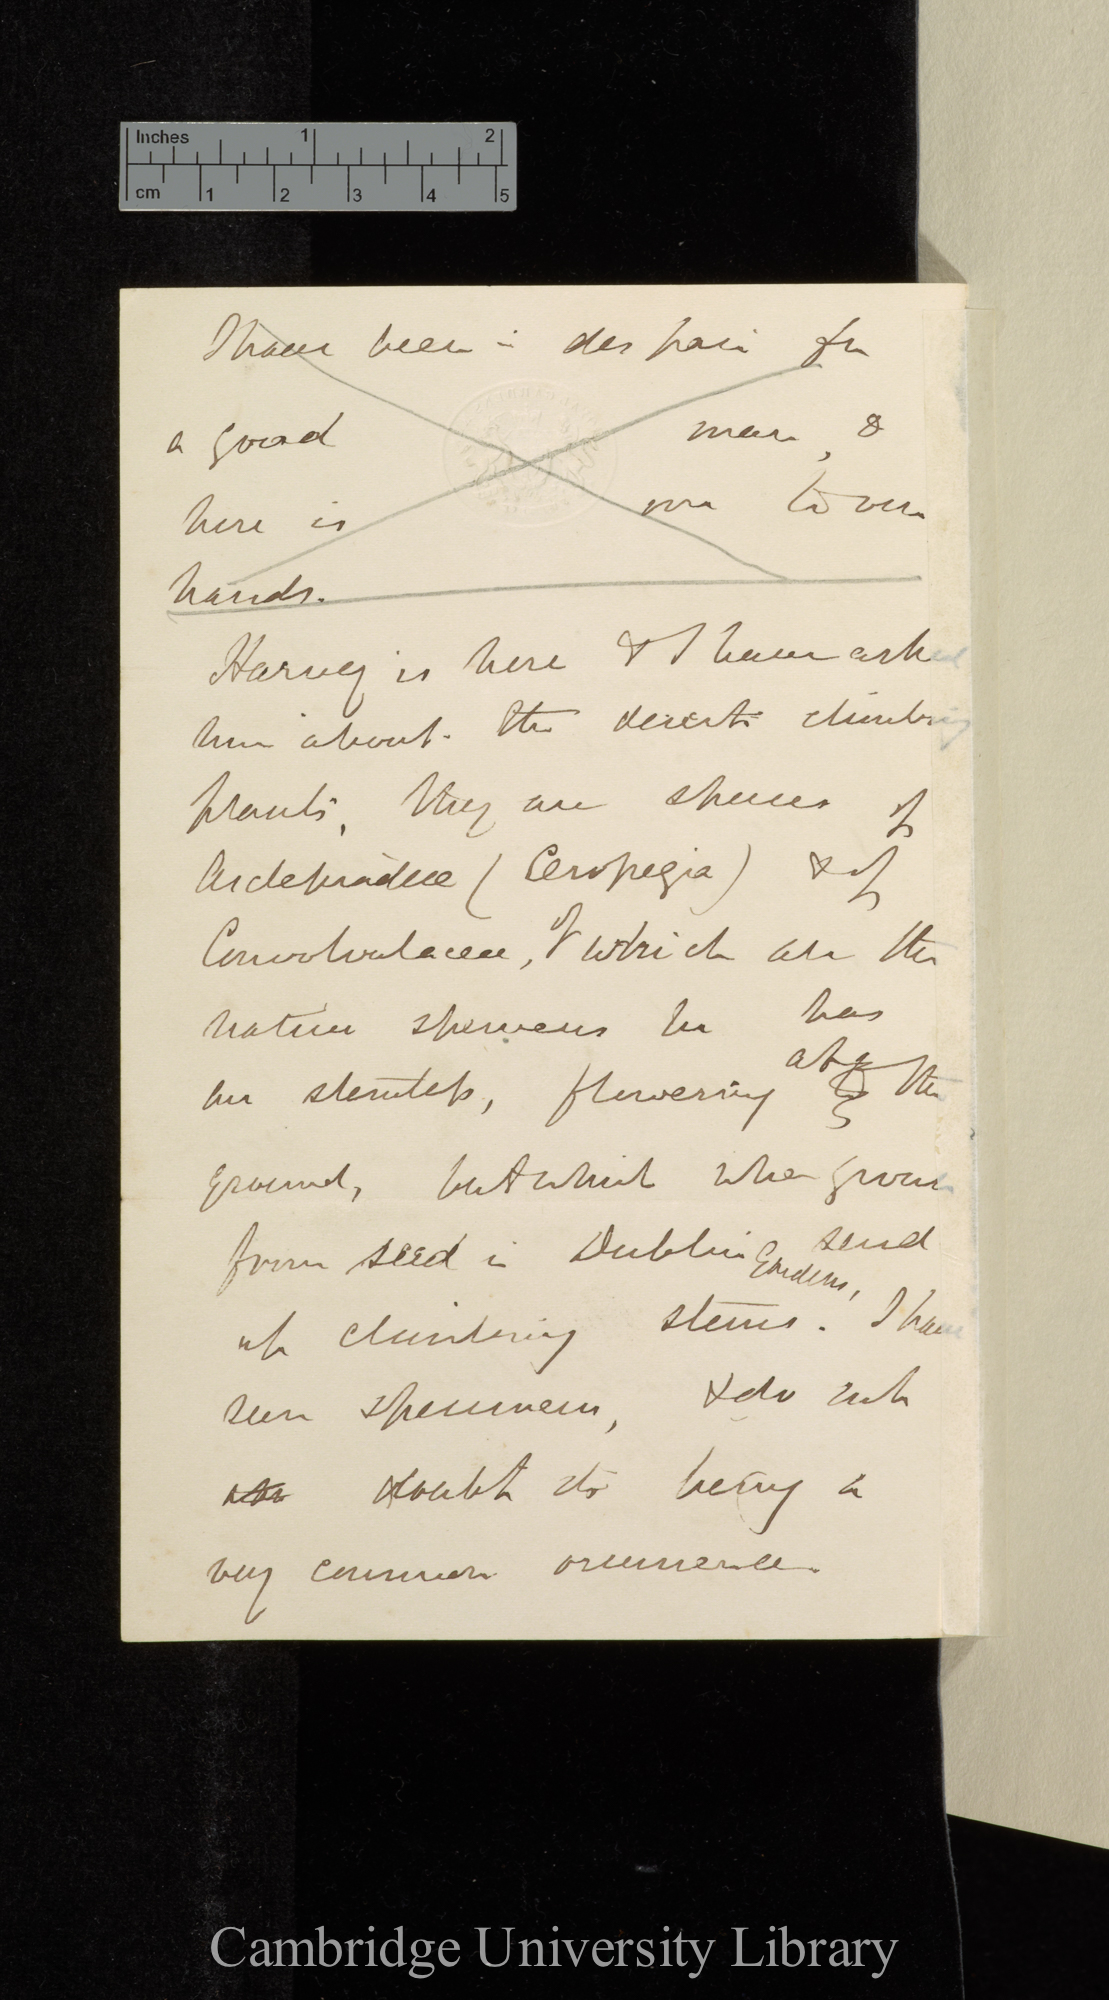 Inches 1 2
cm 1 2 3 4 5
I have been in despair for
a good man, &
here is one to our
hands.
Harvey is here & I have asked
him about the desert climbing
plants, they are species of
Asclepiadeae (Ceropegia) & of
Convolvulaceae, of which all the
native specimens he has
are stemless, flowering at the
ground, but which when grown
from seed in Dublin Gardens, send
up climbing stems. I have
seen specimens, & do not
doubt its being a
very common occurrence.
Cambridge University Library